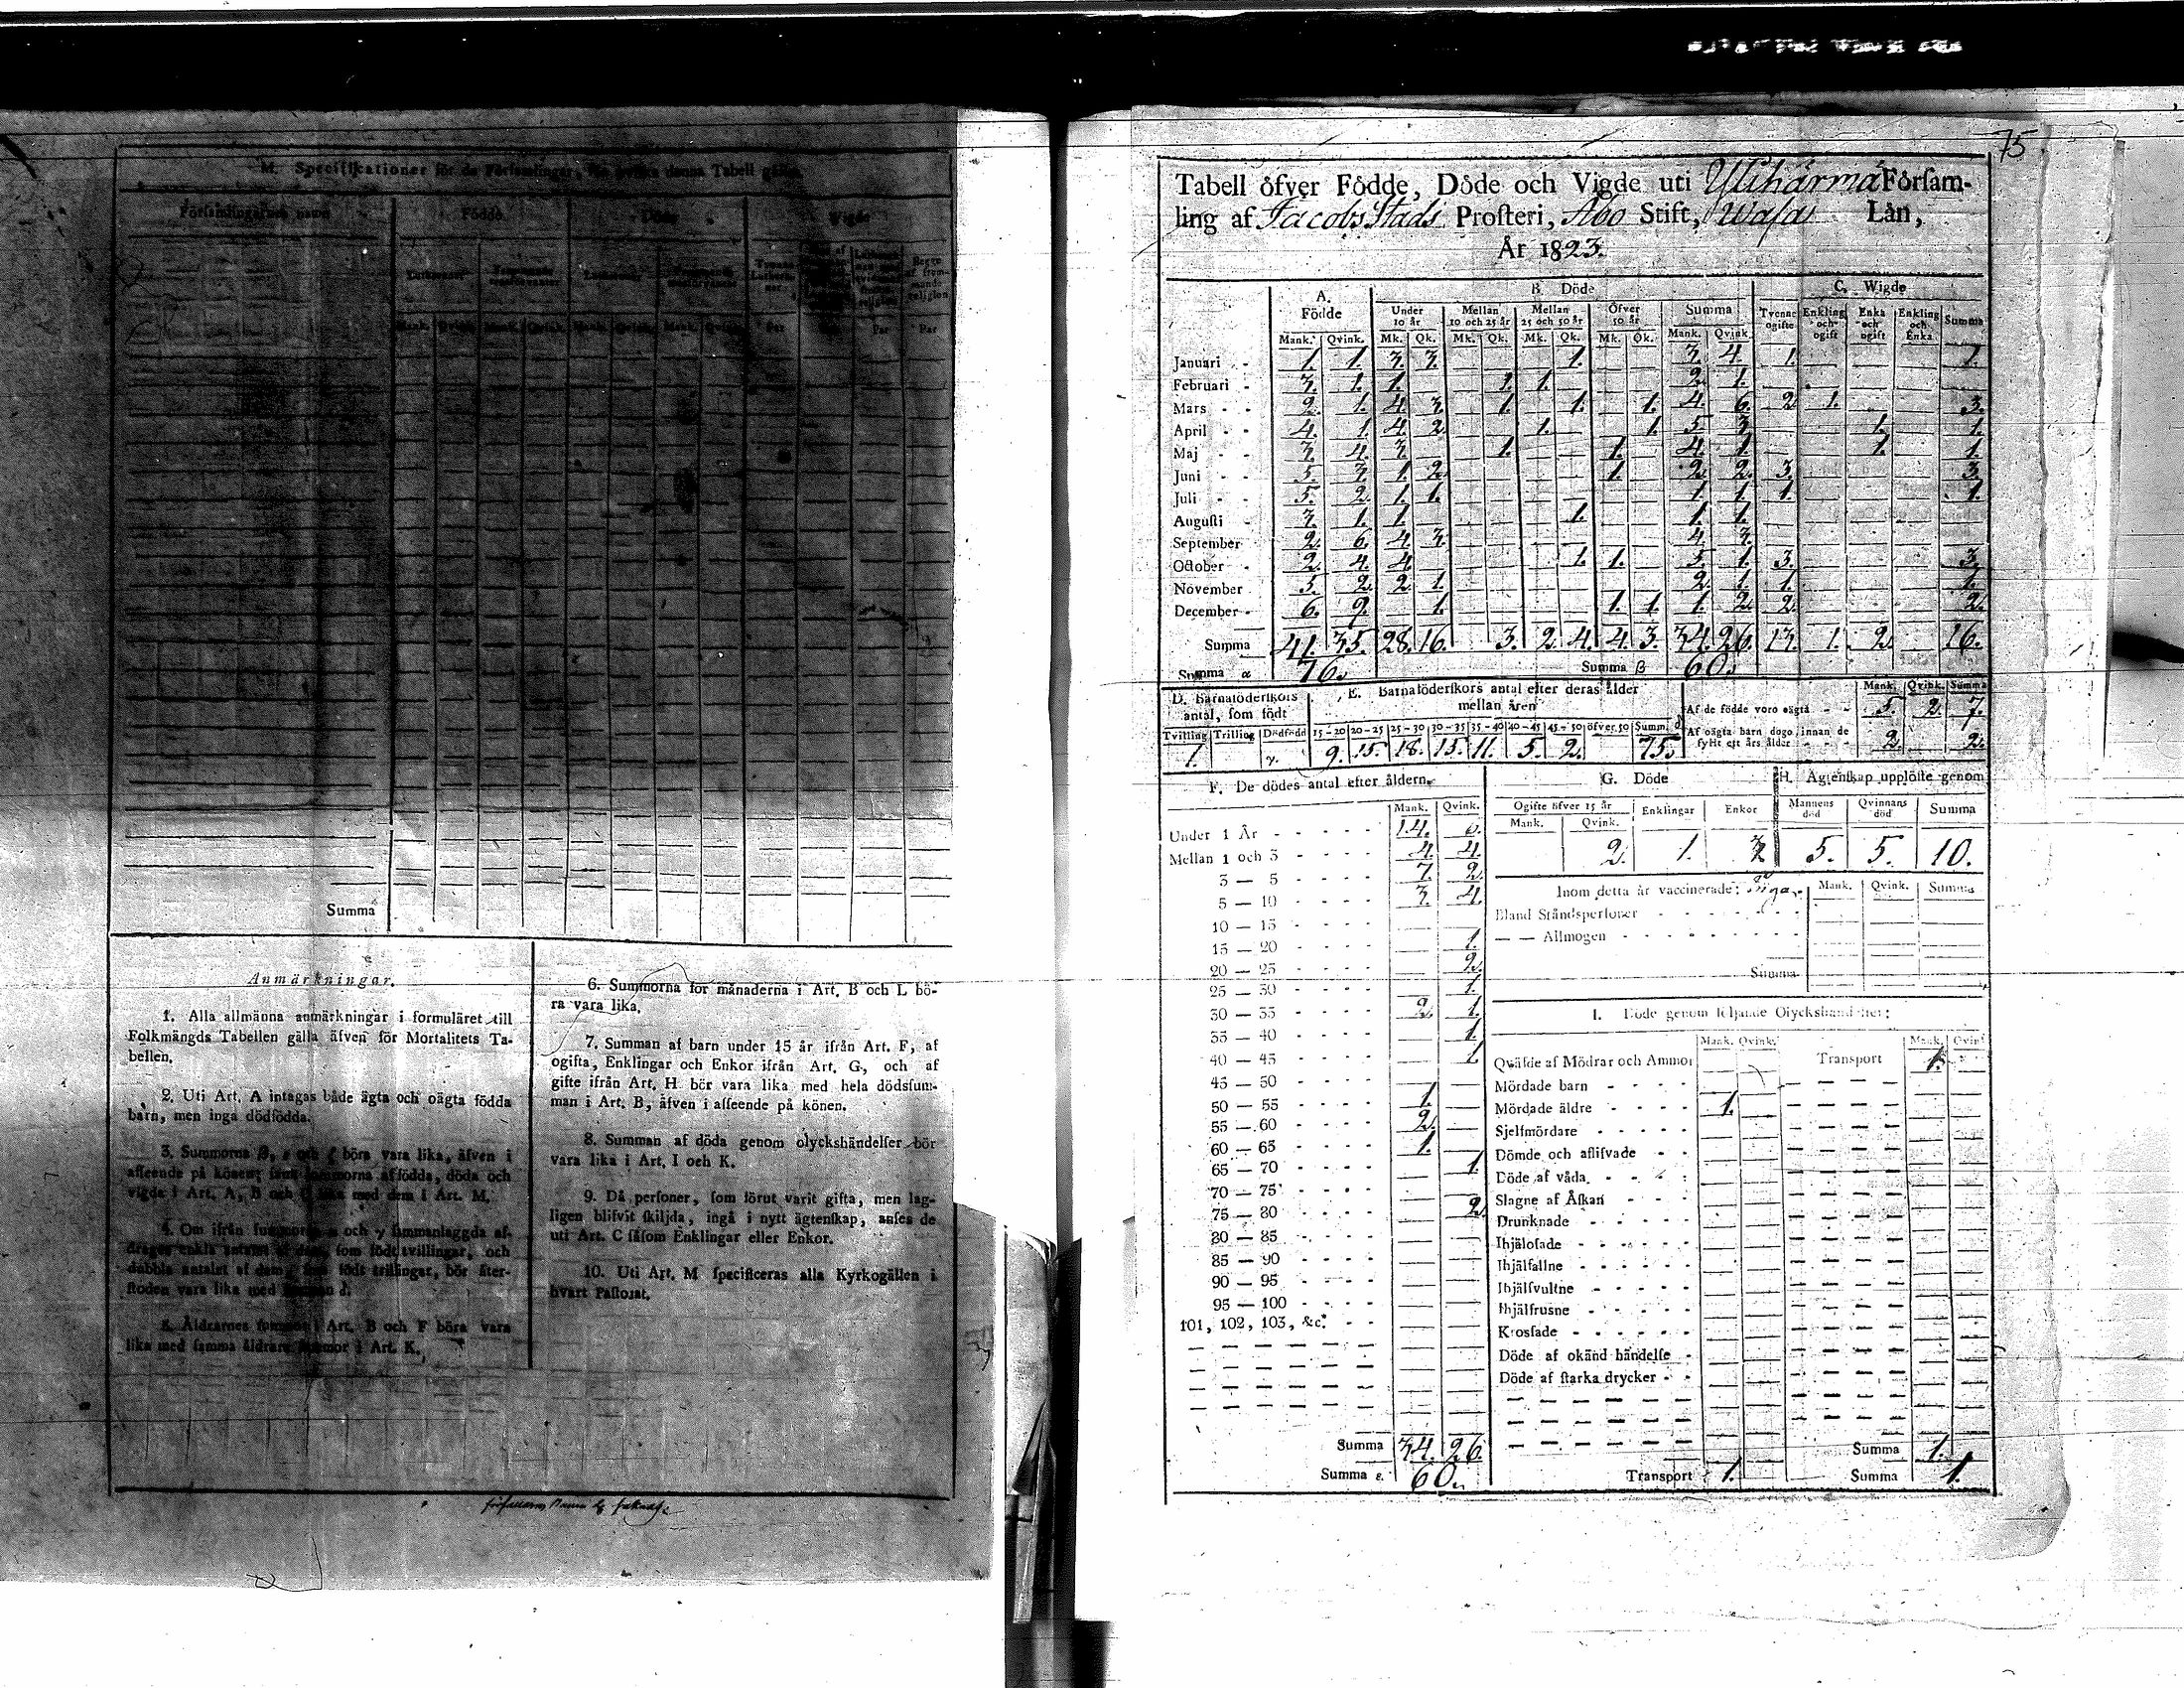 M. Specificationer för de Församlingar,
Församlingarnes namn Födde Döde Wigde
Mank. Qvink. Mank. Qvink. Mank. Qvink. Mank. Qvink. Par Par Par
Summa
Anmärkningar.
1. Alla allmänna anmärkningar i formuläret till
Folkmängds Tabellen gälla äfven för Mortalitets Ta-
bellen.
2. Uti Art. A intagas både ägta och oägta födda
barn, men inga dödfödda.
3. Summorna böra vara lika, äfven i
afseende på könen; samt summorna af födda, döda och
vigda i Art. A, B och C lika med dem i Art. M.
4. Om ifrån summorna α och γ sammanlaggda af-
drages enkla antalet af dem, som födt tvillingar, och
dubbla antalet af dem, som födt trillingar, bör åter-
stoden vara lika med summan δ.
5. Åldrarnes summor i Art. B och F böra vara
lika med samma åldrars summor i Art. K.
6. Summorna för månaderna i Art. B och L bö-
ra vara lika.
7. Summan af barn under 15 år ifrån Art. F, af
ogifta, Enklingar och Enkor ifrån Art. G, och af
gifte ifrån Art. H bör vara lika med hela dödssum-
man i Art. B, äfven i afseende på könen.
8. Summan af döda genom olyckshändelser bör
vara lika i Art. I och K.
9. Då personer, som förut varit gifta, men lag-
ligen blifvit skiljda, ingå i nytt ägtenskap, anses de
uti Art. C såsom Enklingar eller Enkor.
10. Uti Art. M specificeras alla Kyrkogällen i
hvart Pastorat.
75
Tabell öfver Födde, Döde och Vigde uti Ylihärmä Försam-
ling af Jacobs Stads Prosteri, Åbo Stift, Wasa Län,
År 1823.
A. Födde B. Döde C. Wigde
Under 10 år Mellan 10 och 25 år Mellan 25 och 50 år Öfver 50 år Summa Tvenne ogifte Enkling och ogift Enka och ogift Enkling och Enka Summa
Mank. Qvink. Mk. Qk. Mk. Qk. Mk. Qk. Mk. Qk. Mank. Qvink.
Januari 1. 1. 3. 3. 1. 3. 4. 1. 1.
Februari 3. 1. 1. 1. 1. 2. 1.
Mars 2. 1. 4. 3. 1. 1. 1. 4. 6. 2. 1. 3.
April 4. 1. 4. 2. 1. 1. 5. 3. 1. 1.
Maj 3. 4. 3. 1. 1. 4. 1. 1. 1.
Juni 5. 3. 1. 2. 1. 2. 2. 3. 3.
Juli 5. 2. 1. 1. 1. 1. 1. 1.
Augusti 3. 1. 1. 1. 1. 1.
September 2. 6. 4. 3. 4. 3.
October 2. 4. 4. 1. 1. 5. 1. 3. 3.
November 5. 2. 2. 1. 2. 1. 1. 1.
December 6. 9. 1. 1. 1. 1. 2. 2. 2.
Summa 41. 35. 28. 16. 3. 2. 4. 4. 3. 34. 26. 13. 1. 2. 16.
Summa α 76. Summa β 60.
D. Barnaföderskors antal, som födt
Tvilling Trilling Dödfödd
1. γ.
E. Barnaföderskors antal efter deras ålder
mellan åren
15-20 20-25 25-30 30-35 35-40 40-45 45-50 öfver 50 Summ. δ
9. 15. 18. 15. 11. 5. 2. 75.
Mank. Qvink. Summa
Af de födde voro oägta 5. 2. 7.
Af oägta barn dogo, innan de
fyllt ett års ålder 2. 2.
F. De dödes antal efter åldern.
Mank. Qvink.
Under 1 År 14. 6.
Mellan 1 och 3 4. 4.
3 — 5 7. 2.
5 — 10 3. 4.
10 — 15
15 — 20 1.
20 — 25 2.
25 — 30 1.
30 — 35 2. 1.
35 — 40 1.
40 — 45 1.
45 — 50
50 — 55 1.
55 — 60 2.
60 — 65 1.
65 — 70 1.
70 — 75
75 — 80 2.
80 — 85
85 — 90
90 — 95
95 — 100
101, 102, 103, &c.
Summa 34. 26.
Summa ε. 60.
G. Döde
Ogifte öfver 15 år Enklingar Enkor
Mank. Qvink.
2. 1. 3
H. Ägtenskap upplöste genom
Mannens död Qvinnans död Summa
5. 5. 10.
Inom detta år vaccinerade: inga. Mank. Qvink. Summa
Bland Ståndspersoner
— — Allmogen
Summa
I. Döde genom följande Olyckshändelser:
Mank. Qvink. Mank. Qvink.
Qväfde af Mödrar och Ammor Transport 1.
Mördade barn
Mördade äldre 1.
Sjelfmördare
Dömde och aflifvade
Döde af våda
Slagne af Åskan
Drunknade
Ihjälosade
Ihjälfallne
Ihjälsvultne
Ihjälfrusne
Krossade
Döde af okänd händelse
Döde af starka drycker
Summa 1.
Transport 1. Summa 1.